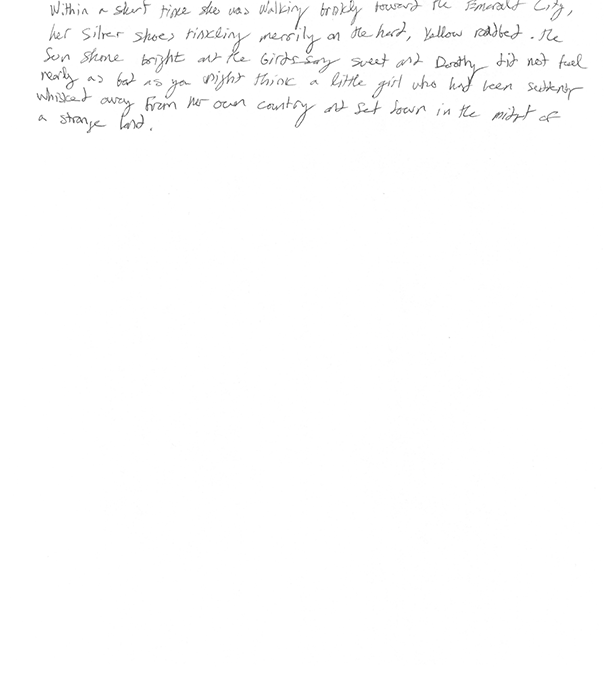 Within a short time she was walking briskly toward the Emerald City,
her Silver Shoes tinkling merrily on the hard, yellow roadbed. The
Sun shone bright and the birds sang sweet and Dorothy did not feel
nearly as bad as you might think a little girl who had been suddenly
whisked away from her own country and set down in the midst of
a strange land.